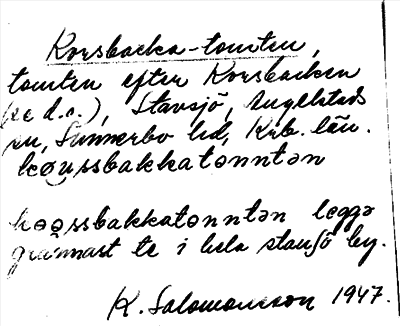 Korsbacka-tomten,
tomten efter Korsbacken
(se d.o.), Stavsjö, Angelstads
sn, Sunnerbo hd, Krb. län.
koussbakkatonntən
hoossbakkatonntən leggə
grannast te i hela stausjö by.
K. Salomonsson 1947.